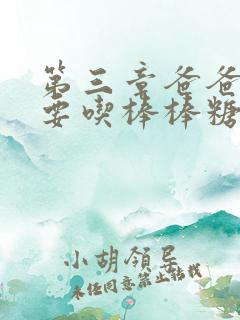 第三章爸爸
要喫棒棒糖
小胡領导
未经同意禁止转载